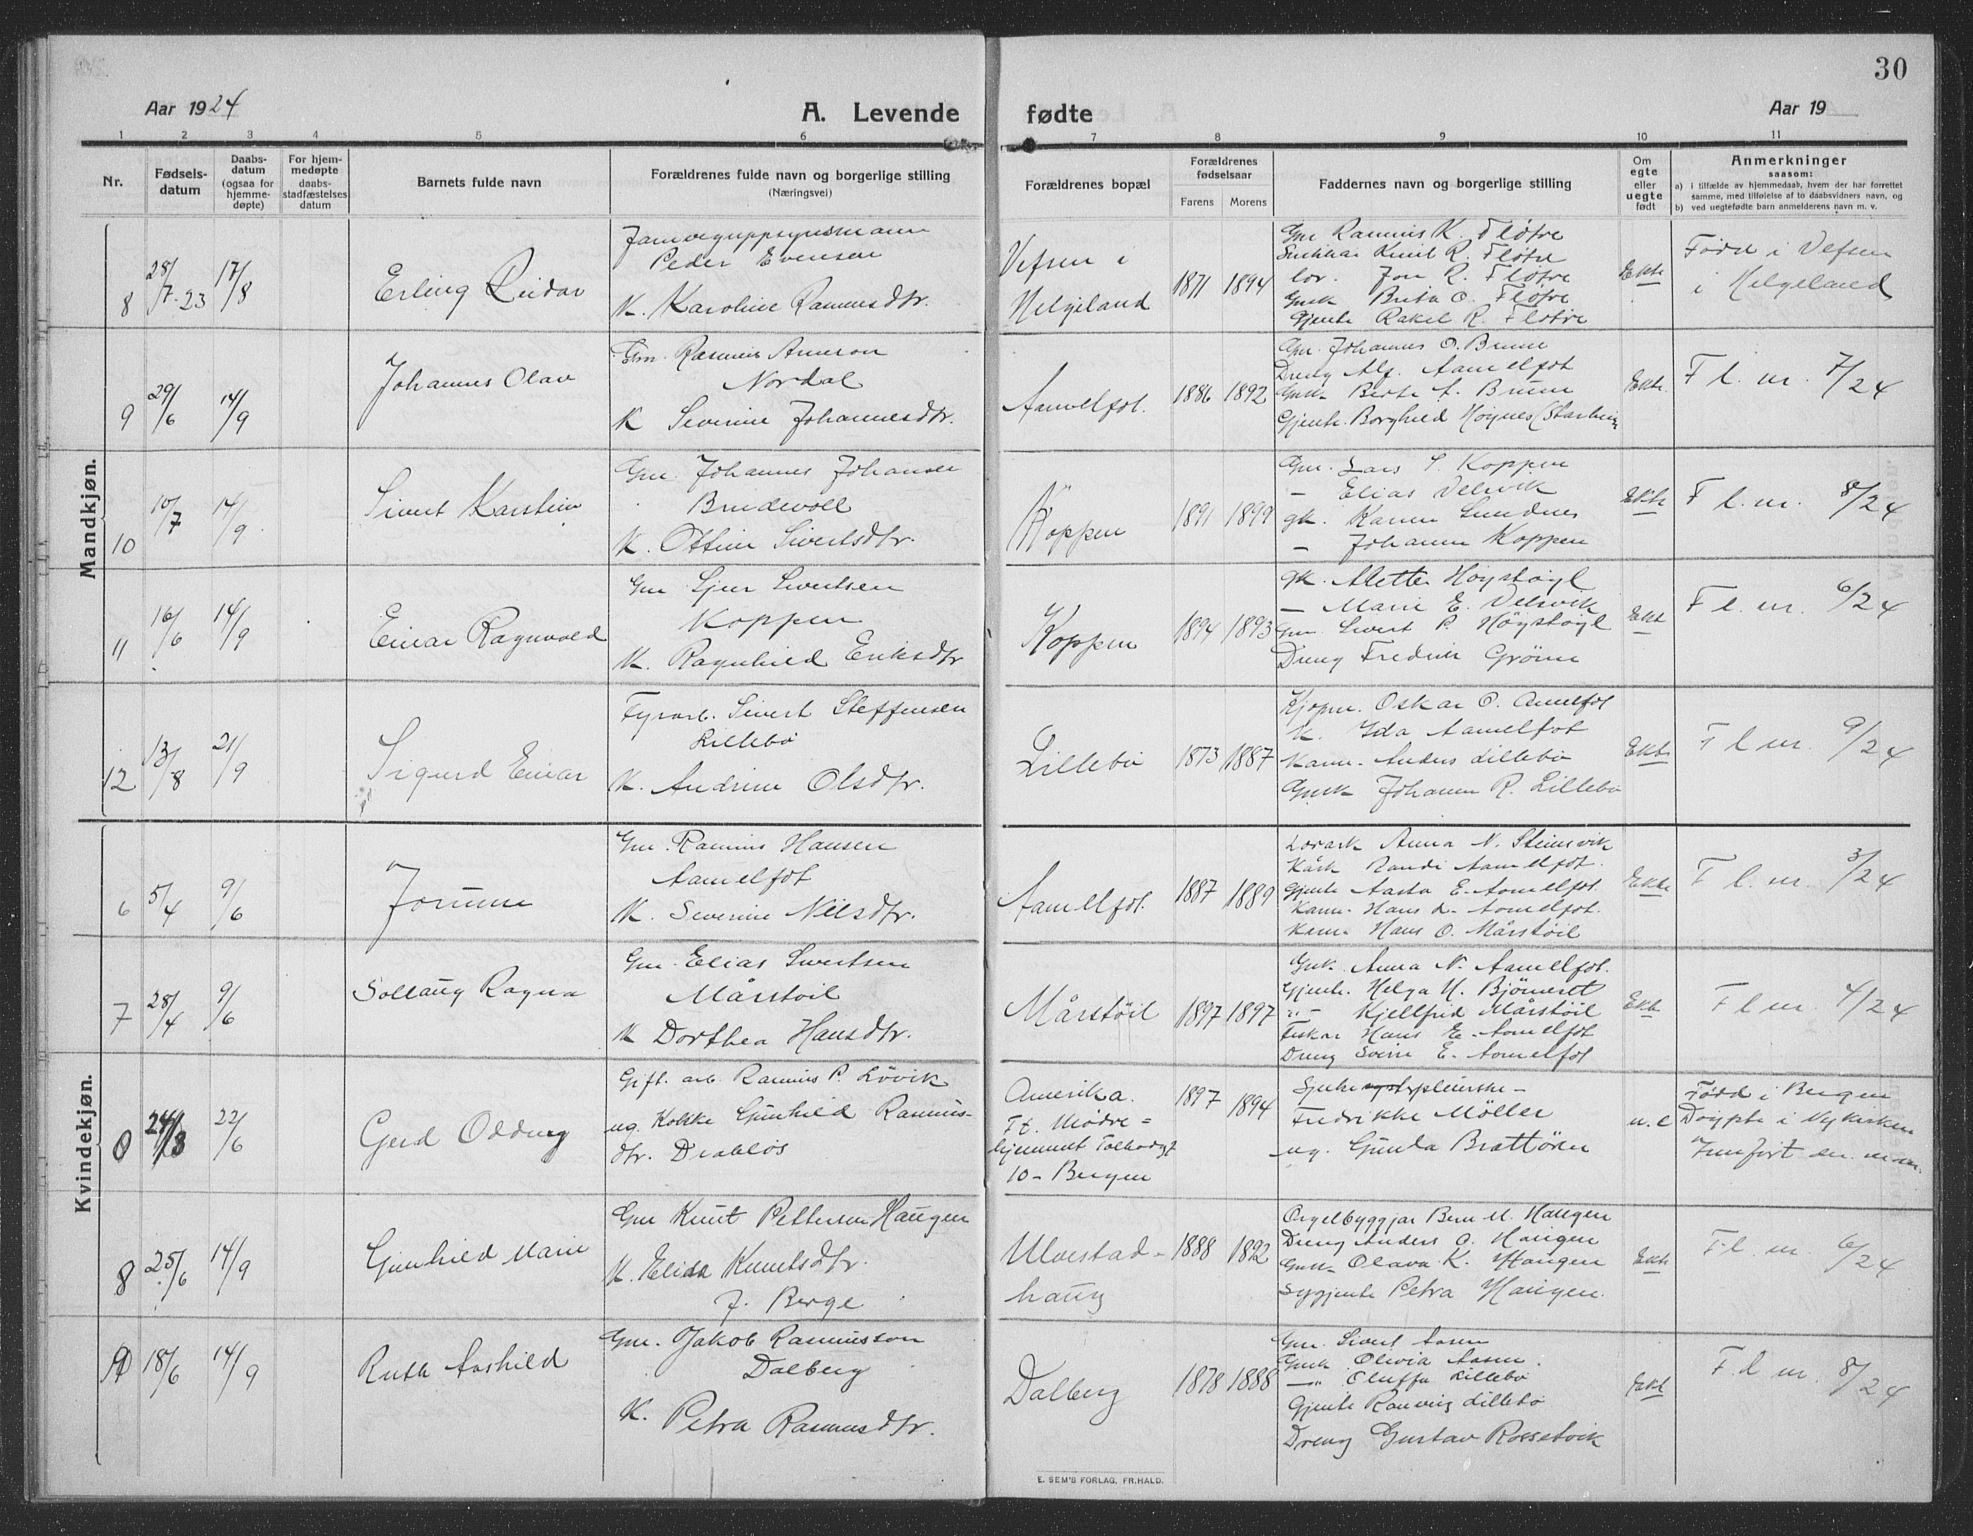 30
Aar 1924
A. Levende fødte
Aar 19
1 2 3 4 5 6 7 8 9 10 11
Nr.
Fødsels-
datum
Daabs-
datum
(ogsaa for
hjemme-
døpte)
For hjem-
medøpte
daabs-
stadfæstelses
datum
Barnets fulde navn
Forældrenes fulde navn og borgerlige stilling
(Næringsvei)
Forældrenes bopæl
Forældrenes
fødselsaar
Farens Morens
Faddernes navn og borgerlige stilling
Om
egte
eller
uegte
født
Anmerkninger
saasom:
a) i tilfælde av hjemmedaab, hvem der har forrettet
samme, med tilføielse af to daabsvidners navn, og
b) ved uegtefødte barn anmelderens navn m. v.
Mandkjøn.
8
28/7-23
17/8
Erling Reidar
Peder Evensen
K. Karoline Rasmusdtr.
Vefsen i
Helgeland
1871 1894
Gm Rasmus K. Fløtre
Knut R. Fløtre
Jon R. Fløtre
Gmk Brita O. Fløtre
Gjente Rakel R. Fløtre
Ekte
Född i Vefsen
i Helgeland
9
29/6
14/9
Johannes Olav
Gm. Rasmus Arneson
Nordal
K Severine Johannesdtr.
Aamelfot.
1886 1892
Gm. Johannes O. Brune
Dreng Alf. Aamelfot
Gmk Berte A. Brune
Gjente Borghild Høynes
Ekte.
F l. nr. 7/24
10
10/7
14/9
Sivert Karstein
Gm. Johannes Johansen
Brudevoll
K. Ottine Sivertsdtr.
Koppen
1891 1899
Gm. Lars S. Koppen
- Elias Velsvik
gk. Karen Sundnes
- Johanne Koppen
Ekte
F l. nr. 8/24
11
16/6
14/9
Einar Ragnvald
Gm Sjur Sivertsen
Koppen
K. Ragnhild Eriksdtr
Koppen
1894 1893
gk. Mette Høystøyl
- Marie E. Velsvik
Gm. Sivert P. Høystøyl
Dreng Fredrik Gröne
Ekt
F l. nr. 6/24
12
13/8
21/9
Sigurd Einar
Fyrarb. Sivert Steffensen
Lillebø
K. Andrine Olsdtr.
Lillebø
1873 1887
Kjøpm. Oskar O. Aamelfot
K. Ida Aamelfot
Kaar. Anders Lillebø
Gmk Johanne R. Lillebø
Ekte
F l nr. 9/24
Kvindekjøn.
6
5/4
9/6
Jorunn
Gm. Rasmus Hansen
Aamelfot
K. Severine Nilsdtr.
Aamelfot.
1887 1889
Anna N. Steinsvik
Kårk Randi Aamelfot.
Gjente Aasta E. Aamelfot.
Hans L. Aamelfot.
Hans O. Mårstöil
Ekte
F l. nr. 3/24
7
28/4
9/6
Sollaug Ragna
Gm. Elias Sivertsen
Mårstöil
K Dorthea Hansdtr.
Mårstöil
1897 1897
Gmk. Anna N. Aamelfot.
Gjente. Helga H. Bjørneset
" - Kjellfrid Mårstöil
Fiskar Hans E. Aamelfot
Dreng Sverre E. Aamelfot
Ekte
F l nr. 4/24
0
24/3
22/6
Gerd Oddny
Gift. arb. Rasmus P. Lövik
ug. Kokke Gunhild Rasmus-
dtr. Drabløs
Amerika.
F.t. Mødre=
hjemmet
10 - Bergen
1897 1894
Fredrikke Möller
ug. Gunda Brattøren
u.e
Född i Bergen
Døypte i Nykirken
8
25/6
14/9
Gunhild Marie
Gm Knut Pettersen Haugen
K. Elida Knutsdtr.
f. Berge
Ulvestad-
haug
1888 1892
Orgelbyggjar Bern M. Haugen
Dreng Anders O. Haugen
Gmk. Olava K. Haugen
Sygjente Petra Haugen.
Ekte
F l. nr 6/24
9
18/6
14/9
Ruth Aashild
Gm. Jakob Rasmusson
Dalberg
K. Petra Rasmusdtr.
Dalberg
1878 1888
Gm. Sivert Aasen
Gmk Olivia Aasen.
-"- Oluffa Lillebø
Gjente Ranveig Lillebø
Dreng Gustav Rossetvik
Ekte
F. l nr. 8/24
E. SEM'S FORLAG, FR.HALD.